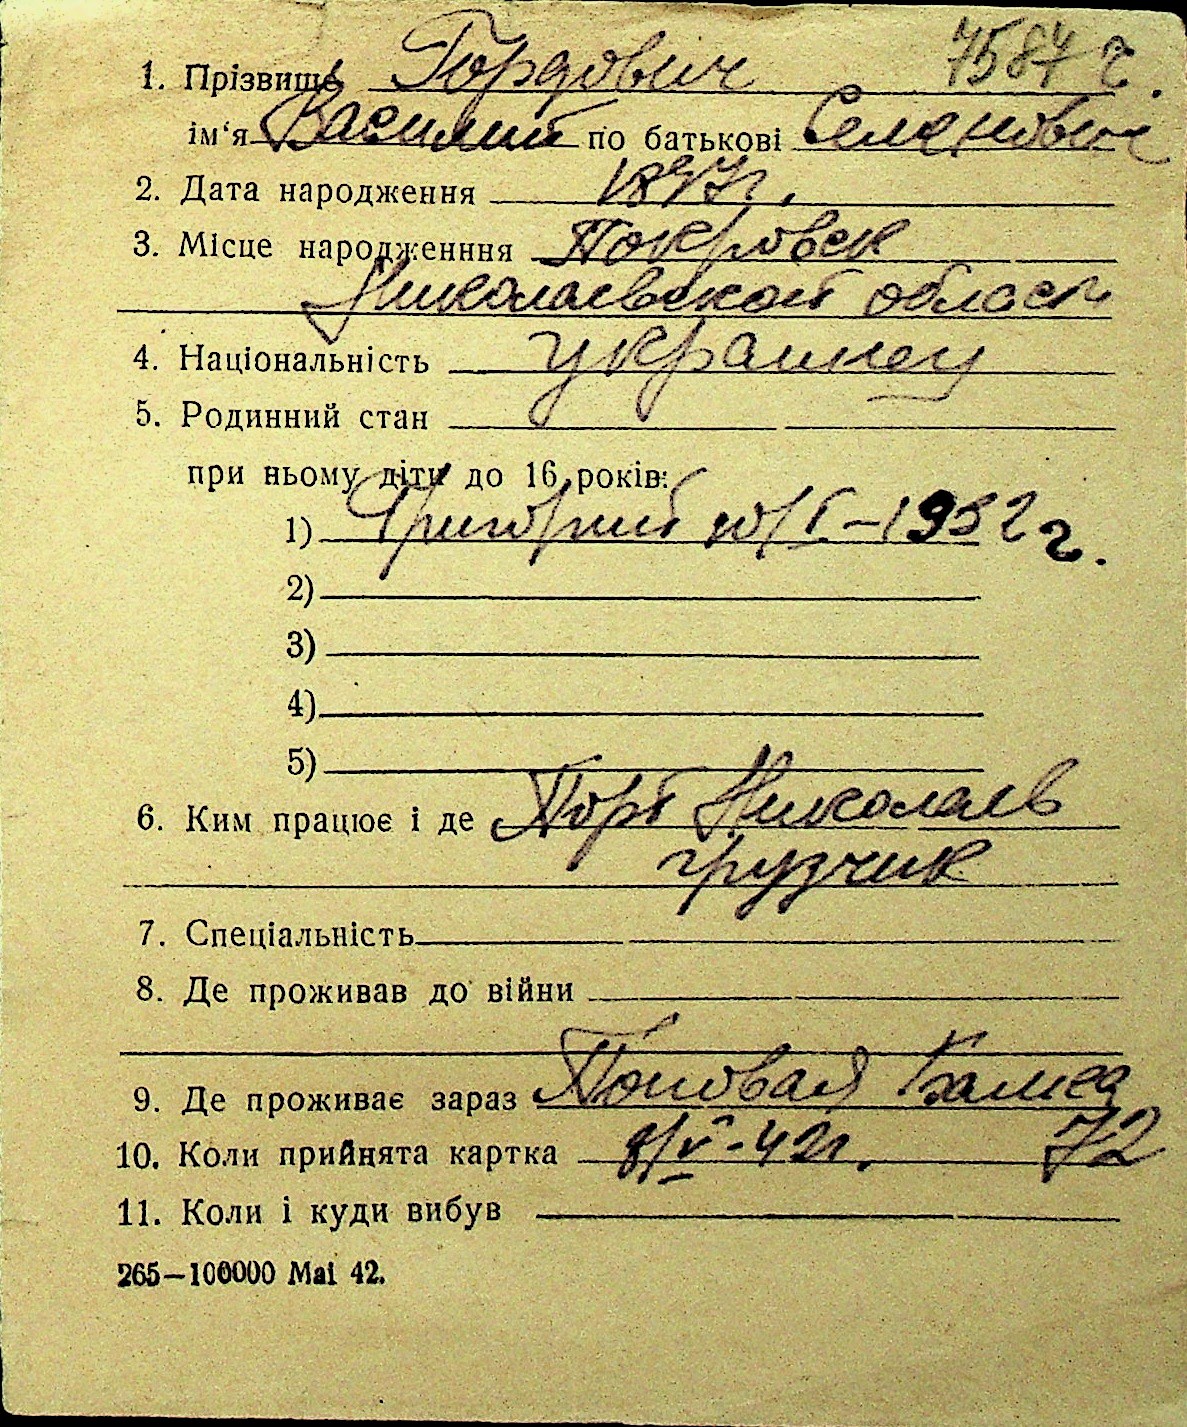 7587 г.
1. Прізвище Гордович
ім‘я Василий по батькові Семенович
2. Дата народження 1897г.
3. Місце народженння Покровск
Николаевской област
4. Національність украинец
5. Родинний стан
при ньому діти до 16 років:
1) Григорий 10/I-1932 г.
2)
3)
4)
5)
6. Ким працює і де Порт Николаев
грузчик
7. Спеціальність
8. Де проживав до війни
9. Де проживає зараз
10. Коли прийнята картка 8/V-42г. 72
11. Коли і куди вибув
265—100000 Mai 42.